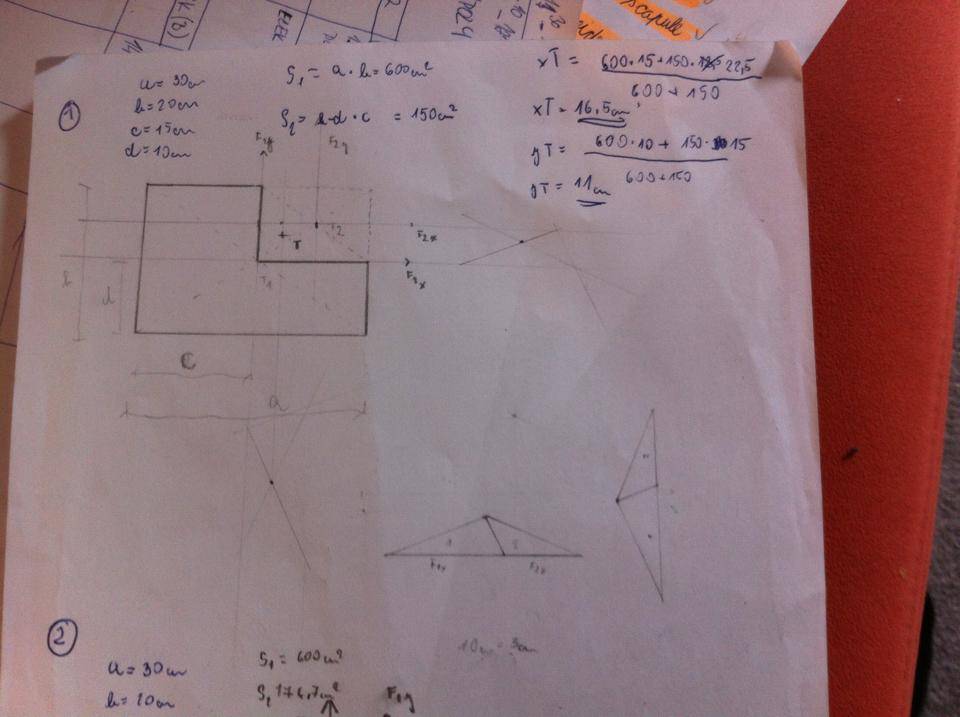 scapule
①
a = 30cm
b = 20cm
c = 15cm
d = 10cm
S₁ = a · b = 600cm²
S₂ = b-d · c = 150cm²
xT = 600·15+150· 22,5
600 + 150
xT = 16,5cm
yT = 600·10 + 150· 15
600+150
yT = 11cm
F₁y
F₂y
T
T2
F₂x
T₁
F₁x
b
d
c
a
1
2
F₁x
F₂x
②
a = 30cm
b = 20cm
S₁ = 600cm²
F₁y